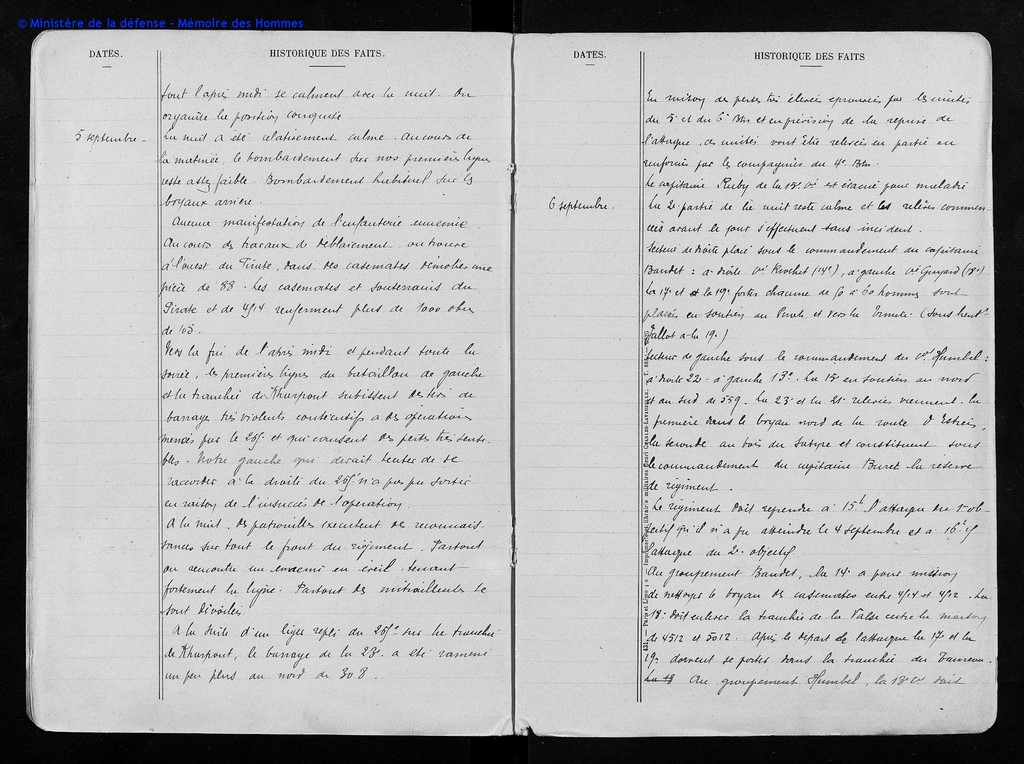 © Ministère de la défense - Mémoire des Hommes
DATES.
HISTORIQUE DES FAITS.
tout l'après midi se calment avec la nuit. On
organise la position conquise
5 septembre -
La nuit a été relativement calme. Au cours de
la matinée, le bombardement sur nos premières lignes
reste assez faible. Bombardement habituel sur les
boyaux arrière.
Aucune manifestation de l'infanterie ennemie.
Au cours des travaux de déblaiement on trouve
à l'ouest du Pirate, dans des casemates démolies une
pièce de 88. Les casemates et souterrains du
Pirate et de 4914 renferment plus de 1000 obus
de 105.
Vers la fin de l'après midi et pendant toute la
soirée, les premières lignes du bataillon de gauche
et la tranchée de Kharpout subissent des tirs de
barrage très violents consécutifs a des opérations
menées par le 265e et qui causent des pertes très sensi-
bles. Notre gauche qui devait tenter de se
raccorder à la droite du 265e n'a pas pu sortir
en raison de l'insuccès de l'opération.
A la nuit, des patrouilles exécutent des reconnais
sances sur tout le front du régiment. Partout
on rencontre un ennemi en éveil tenant
fortement la ligne. Partout des mitrailleuses se
sont dévoilées
A la suite d'un léger repli du 265e sur la tranchée
de Kharpout, le barrage de la 23e a été ramené
un peu plus au nord de 308.
DATES.
HISTORIQUE DES FAITS
En raison des pertes très élevées éprouvées par les unités
du 5e et du 6e Bns et en prévision de la reprise de
l'attaque, ces unités vont être relevées en partie ou
renforcées par les compagnies du 4e Bn.
Le capitaine Ruby de la 18e Cie est évacué pour maladie
6 septembre.
La 2e partie de la nuit reste calme et les relèves commen-
cées avant le jour s'effectuent sans incident.
Secteur de droite placé sous le commandement du capitaine
Baudet : à droite Cie Rochet (14e), à gauche Cie Guyard (18e)
La 17e et la 19e fortes chacune de 50 à 60 hommes sont
placées en soutien au Pirate et vers la Trinité. (sous lieut
Fallot a la 19e)
Secteur de gauche sous le commandement du Cne Humbel :
à droite 22e à gauche 13e. La 15e en soutien au nord
et au sud de 559. La 23e et la 21e relevées viennent la
première dans le boyau nord de la route d'Estrées,
la seconde au bois du Satyre et constituent sous
le commandement du capitaine Burel la réserve
de régiment.
Le régiment doit reprendre à 15h l'attaque du 1er ob-
jectif qu'il n'a pu atteindre le 4 septembre et à 16h
l'attaque du 2e objectif.
Au groupement Baudet, la 14e a pour mission
de nettoyer le boyau des casemates entre 4914 et 4912. La
18e doit enlever la tranchée de la Valse entre la maison
de 4512 et 5012. Après le départ de l'attaque la 17e et la
19e doivent se porter dans la tranchée du Taureau.
La 18 Au groupement Humbel, la 13e Cie doit